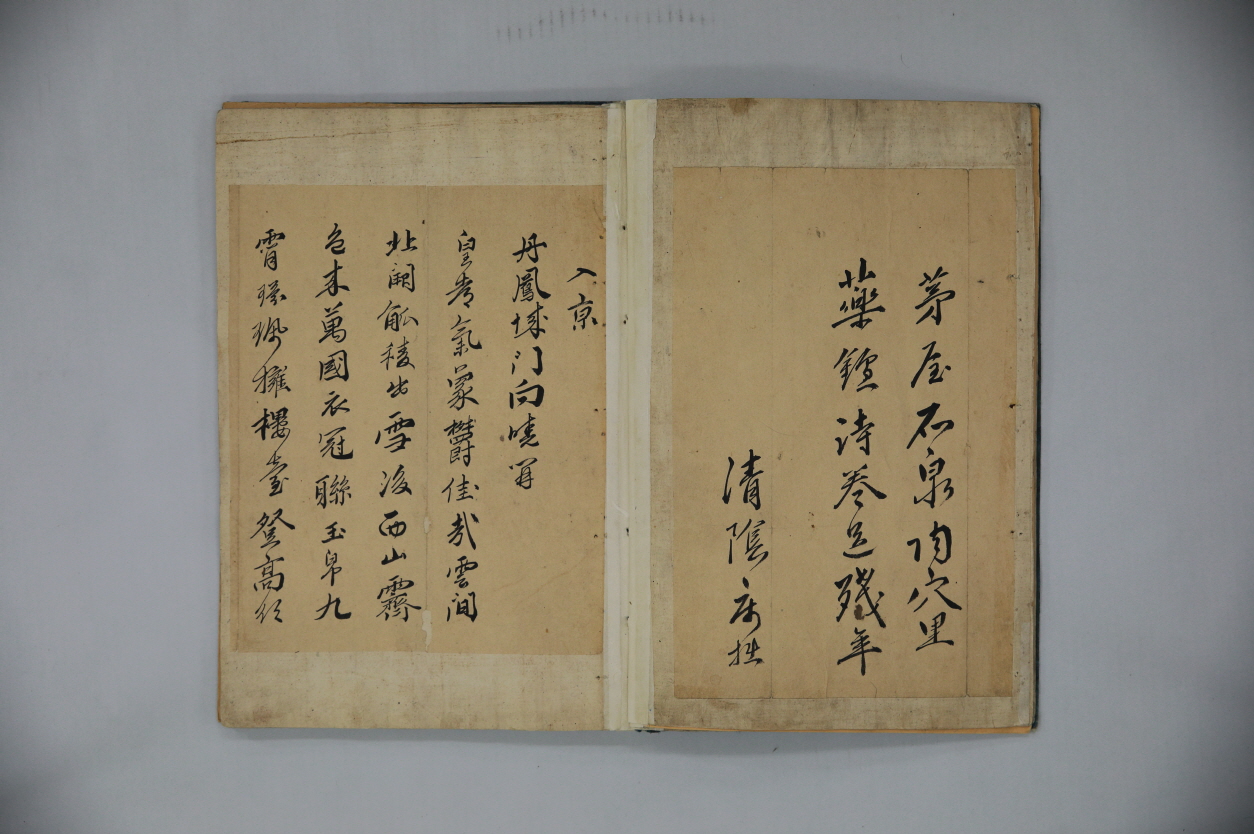 茅屋石泉陶穴里
藥鑪詩卷送殘年
清陰病拙
入京
丹鳳城门向曉開
皇都氣象鬱佳哉雲间
北闕觚稜出雪後西山霽
色來萬國衣冠聯玉帛九
霄環珮擁樓臺登高